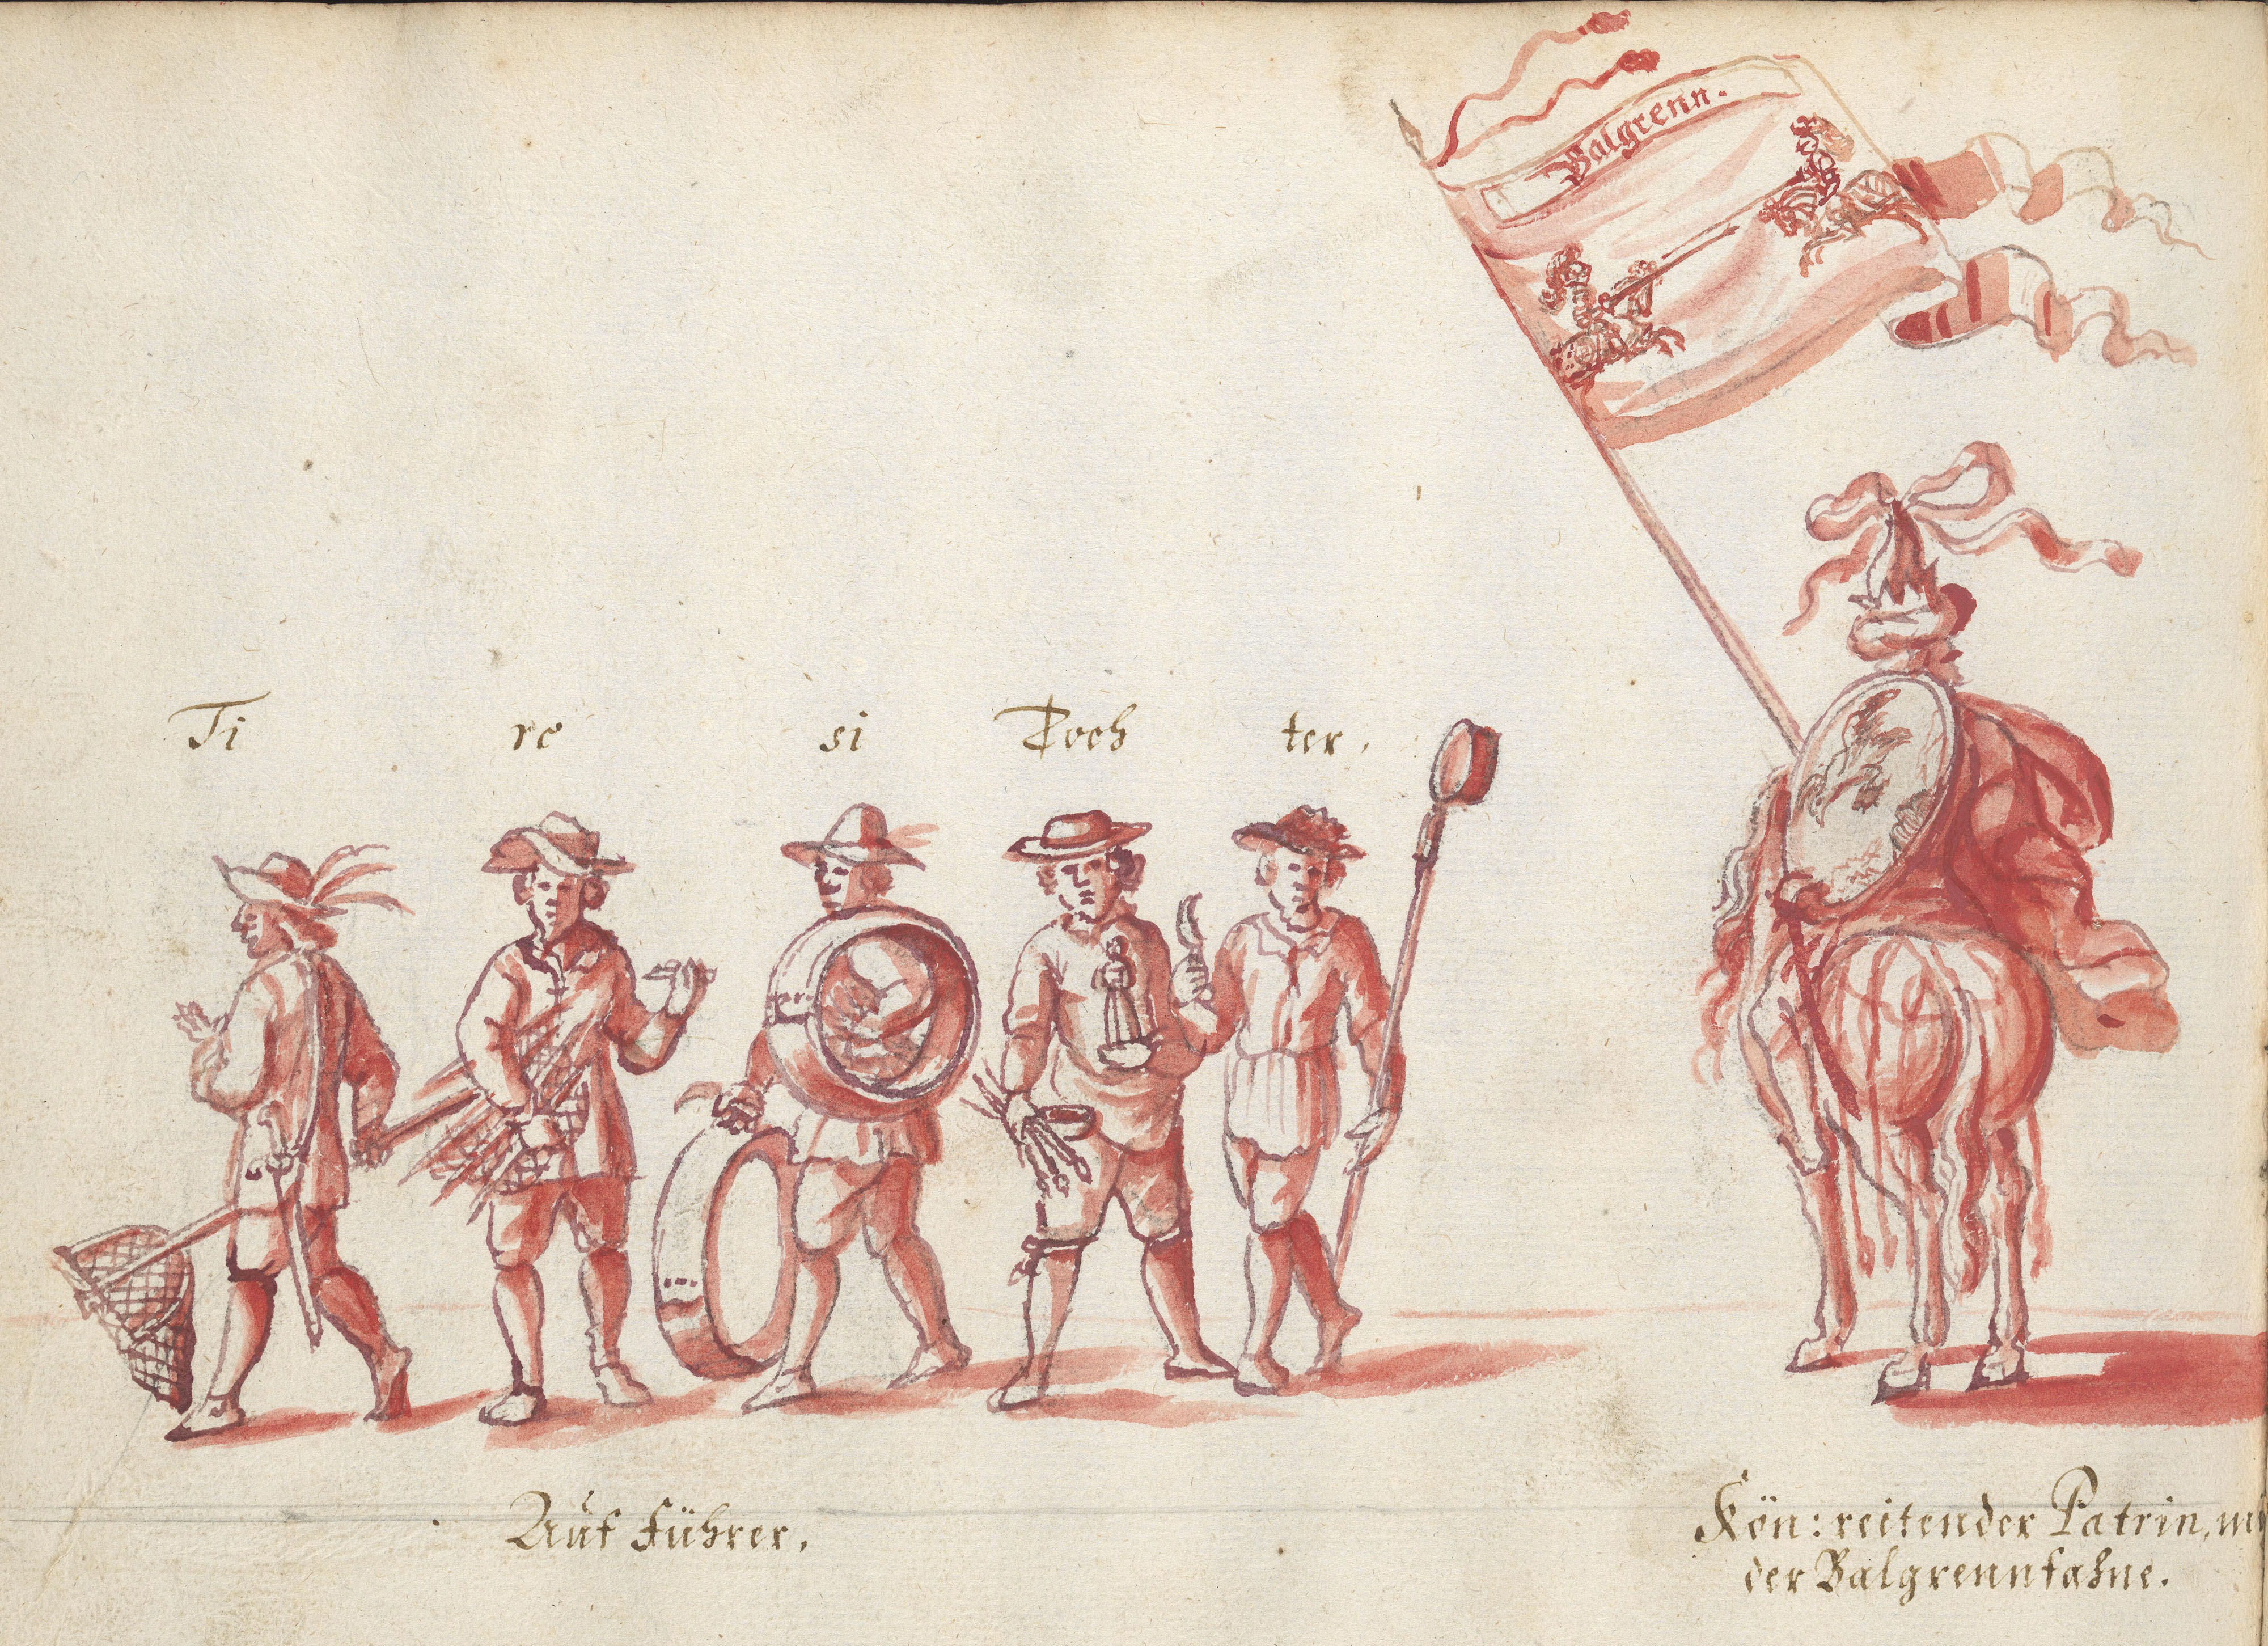 Balgrenn.
Ti re si Toch ter.
Auf führer.
Kön: reitender Patrin, mi
der Balgrennfahne.